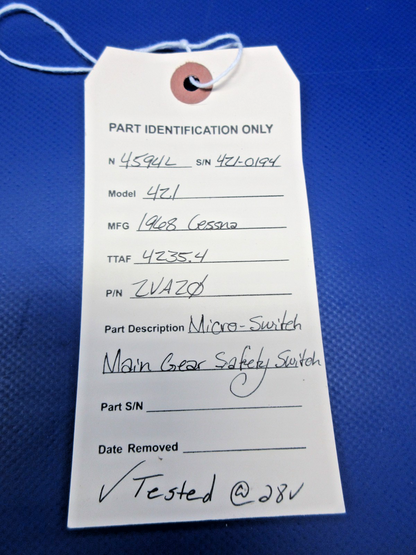 PART IDENTIFICATION ONLY
N 4594L S/N 421-0194
Model 421
MFG 1968 Cessna
TTAF 4235.4
P/N 2VA20
Part Description Micro-Switch
Main Gear Safety Switch
Part S/N
Date Removed
✓ Tested @ 28V